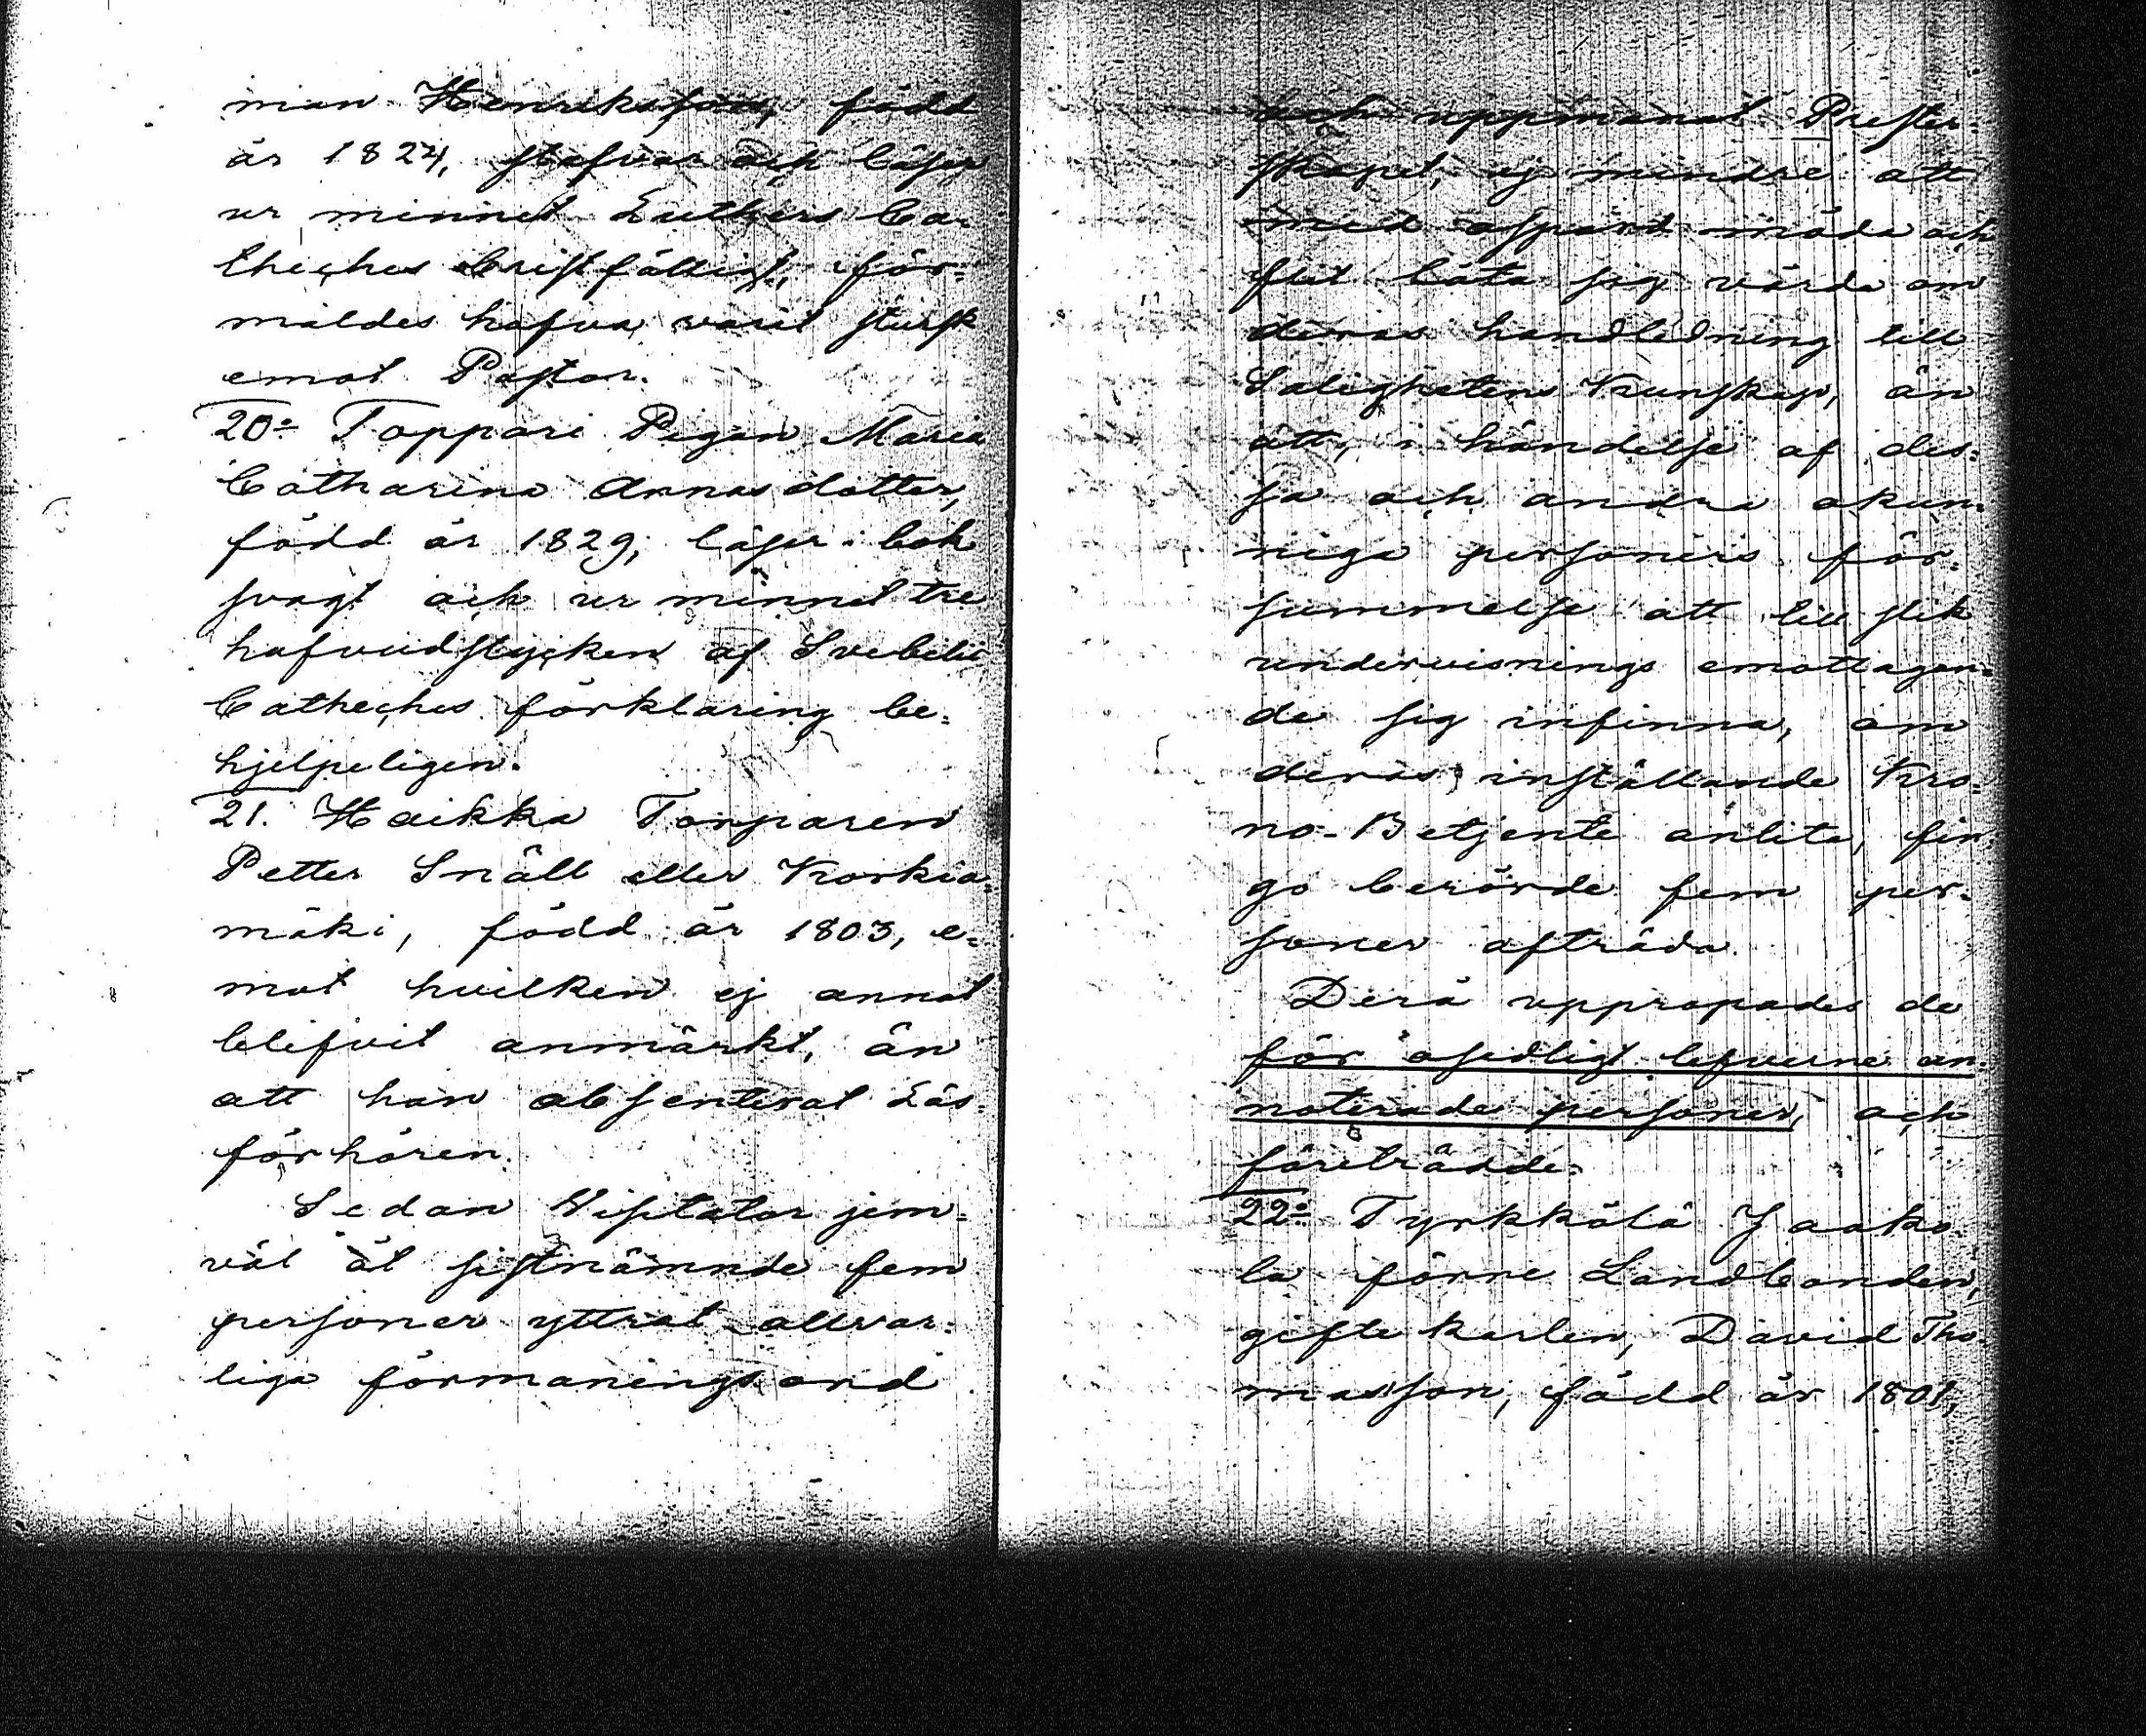 man Henriksson, född
år 1824, stafvar och läser
ur minnet Luthers Ca-
theches bristfälligt, för-
mäldes hafva varit stursk
emot Pastor.
20: Toppari Pigan Maria
Catharina Annasdotter,
född år 1829; läser i bok
svagt och ur minnet tre
hufvudstycken af Svebelii
Catheches förklaring be-
hjelpeligen.
21. Haikka Torparen
Petter Snäll eller Korkia-
mäki, född år 1803, e-
mot hvilken ej annat
blifvit anmärkt, än
att han absenterat Läs-
förhören.
Sedan Visitator jem-
väl åt sistnämnde fem
personer yttrat allvar-
liga förmaningsord
och uppmanat Prester-
skapet, ej mindre att
med ospard möda och
flit låta sig vårda om
deras handledning till
Salighetens Kunskap, än
att, i händelse af des-
sa och andra okun-
niga personers för-
summelse att till slik
undervisnings emottagan-
de sig infinna, om
deras inställande Kro-
no-Betjente anlita, fin-
go berörde fem per-
soner afträda.
Derå uppropades de
för osedligt lefverne an-
noterade personer, och
företrädde:
22: Tyrkkölä Jaako-
la förre Landbonden,
gifte karlen, David Tho-
masson, född år 1801,